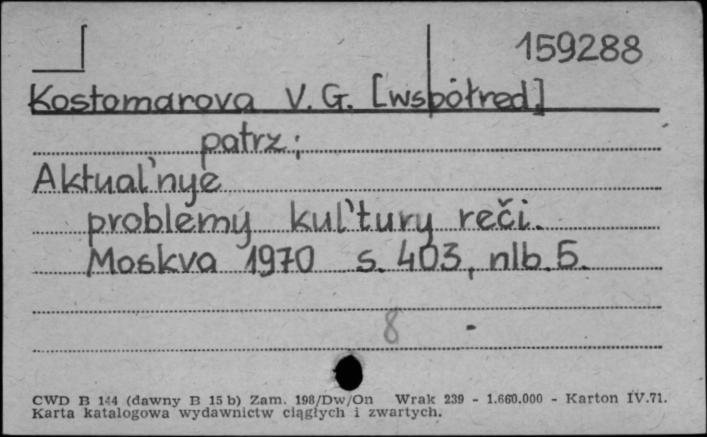 159288
Kostomarova V. G. [współred.]
patrz:
Aktual'nye
problemy kul'tury reči.
Moskva 1970 s. 403, nlb. 5.
8 -
CWD B 144 (dawny B 15 b) Zam. 198/Dw/On Wrak 239 - 1.660.000 - Karton IV.71.
Karta katalogowa wydawnictw ciągłych i zwartych.